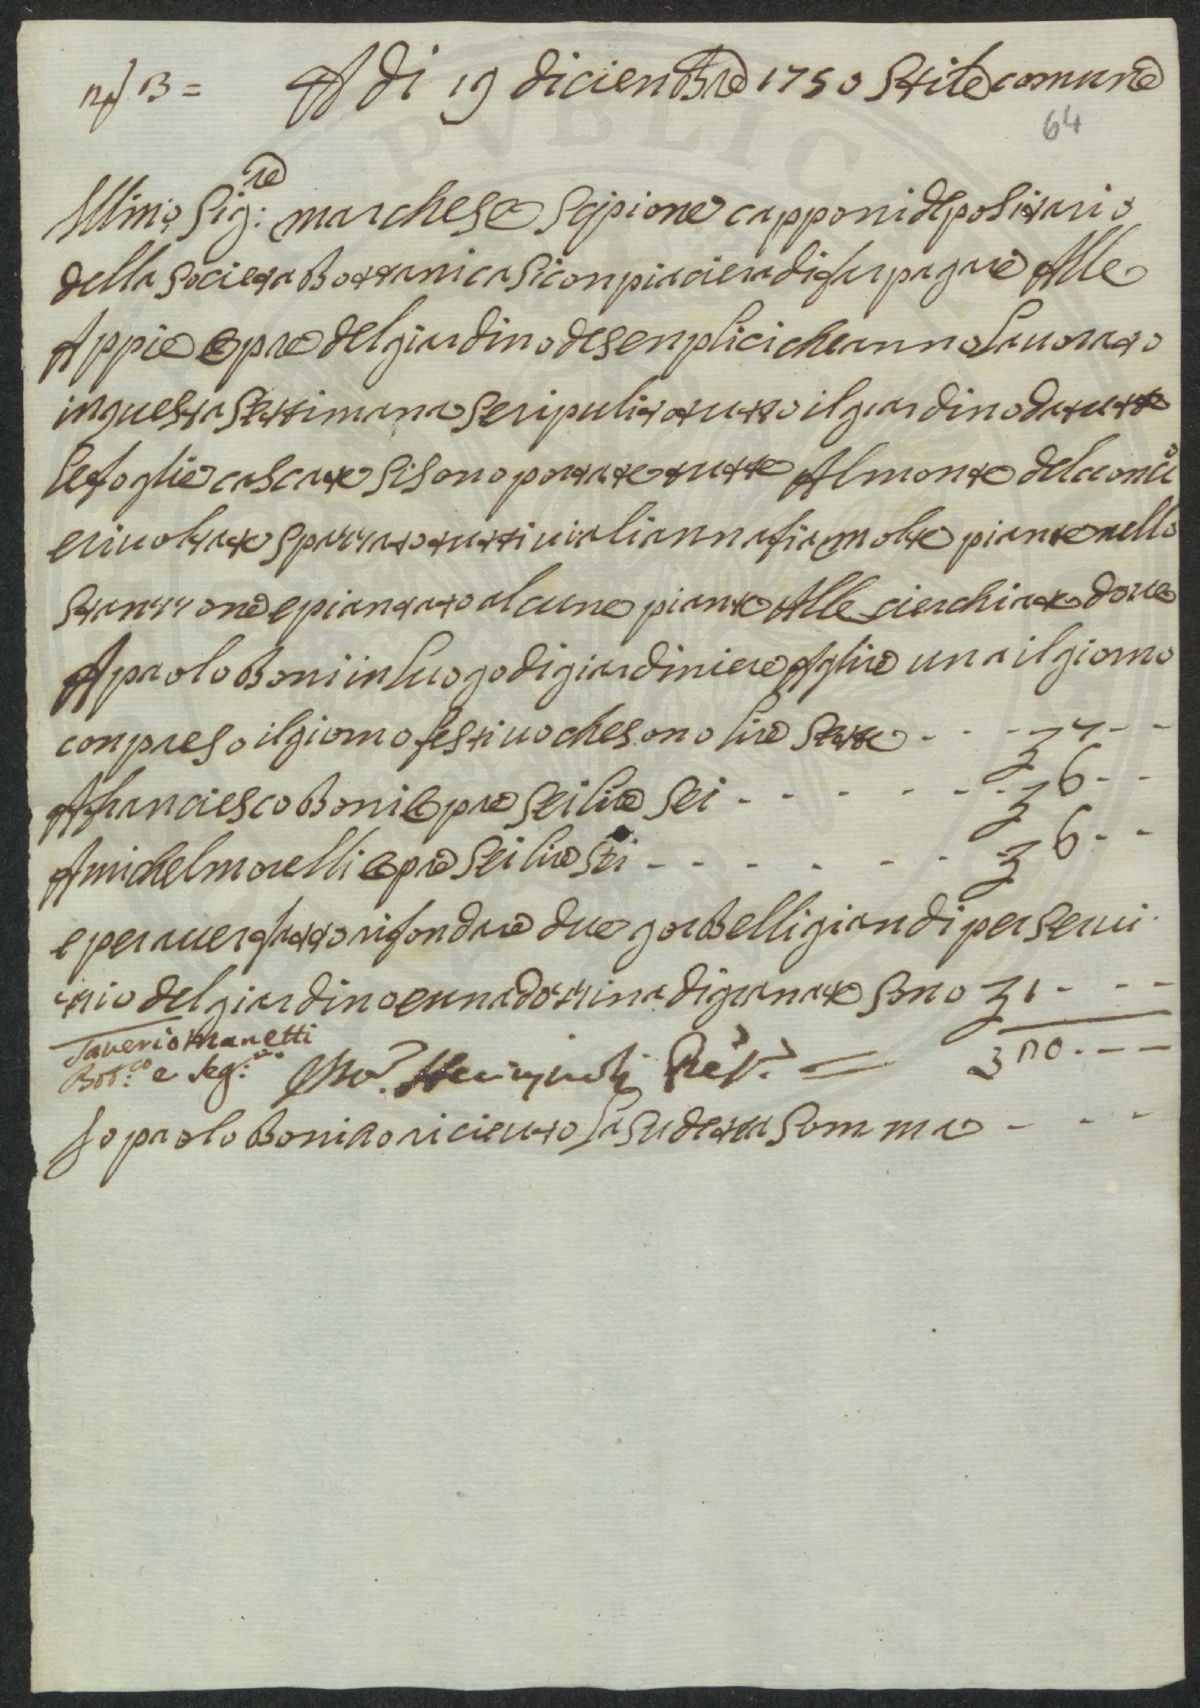 N 13 = A di 19 diciembre 1750 Stile comune
64
Illmo Sig:re marchese Scipione capponi depositario
della Societa Bottanica Si conpiaciera di far pagare Alle
Appie opre del giardino de Senplici che anno Lauorato
in questa Settimana Se ripulito tutto il giardino da tutte
le foglie cascate Si sono portate tutte Al monte del concio
e riuoltate Spazzato tutti i viali annafiat molte piante nello
Stanzzone e piantato alcune piante Alle cierchiate doue
A paolo Boni in Luogo di giardiniere A lire una il giorno
conpreso il giorno festiuo che sono lire Sette - - - £ 7 - -
A franciesco Boni opre Sei lire Sei - - - - - - £ 6 - -
A michel morelli opre Sei lire Sei - - - - - - £ 6 - -
e per auer fatto rifondare due gorbelli grandi per serui
zio del giardino e una dozzina di granate sono £ 1 - - -
Saverio Manetti
Bot:co e Seg:rio
£ 20 - - -
Io paolo Boni o riceuto La Sudetta Somma - - -